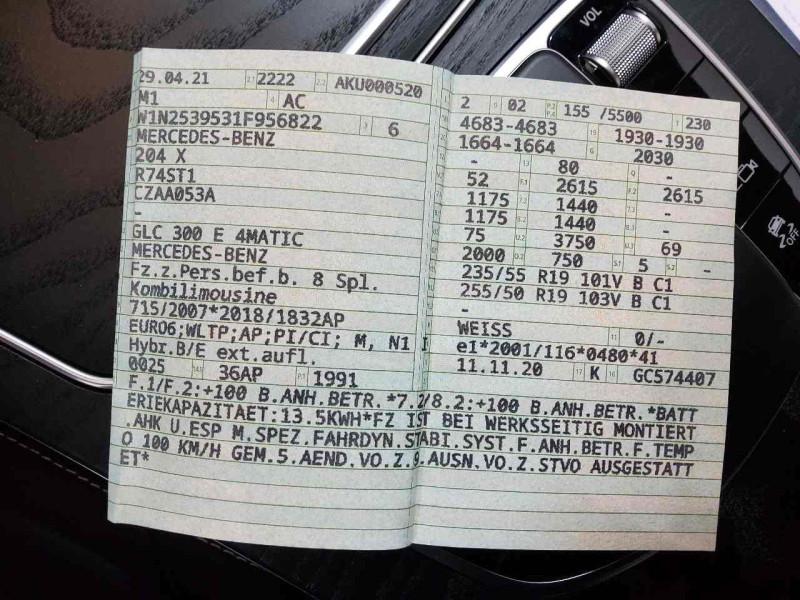 29.04.21 2222 AKU000520
M1 AC
W1N2539531F956822 6
MERCEDES-BENZ
204 X
R74ST1
CZAA053A
-
GLC 300 E 4MATIC
MERCEDES-BENZ
Fz.z.Pers.bef.b. 8 Spl.
Kombilimousine
715/2007*2018/1832AP
EURO6;WLTP;AP;PI/CI; M, N1 I
Hybr.B/E ext.aufl.
0025 36AP 1991
2 02 155 /5500 230
4683-4683 1930-1930
1664-1664 2030
- 80 -
52 2615 2615
1175 1440 -
1175 1440 -
75 3750 69
2000 750 5 -
235/55 R19 101V B C1
255/50 R19 103V B C1
-
WEISS 0/-
e1*2001/116*0480*41
11.11.20 K GC574407
F.1/F.2:+100 B.ANH.BETR.*7.2/8.2:+100 B.ANH.BETR.*BATT
ERIEKAPAZITAET:13.5KWH*FZ IST BEI WERKSSEITIG MONTIERT
.AHK U.ESP M.SPEZ.FAHRDYN.STABI.SYST.F.ANH.BETR.F.TEMP
O 100 KM/H GEM.5.AEND.VO.Z.9.AUSN.VO.Z.STVO AUSGESTATT
ET*
VOL
OFF